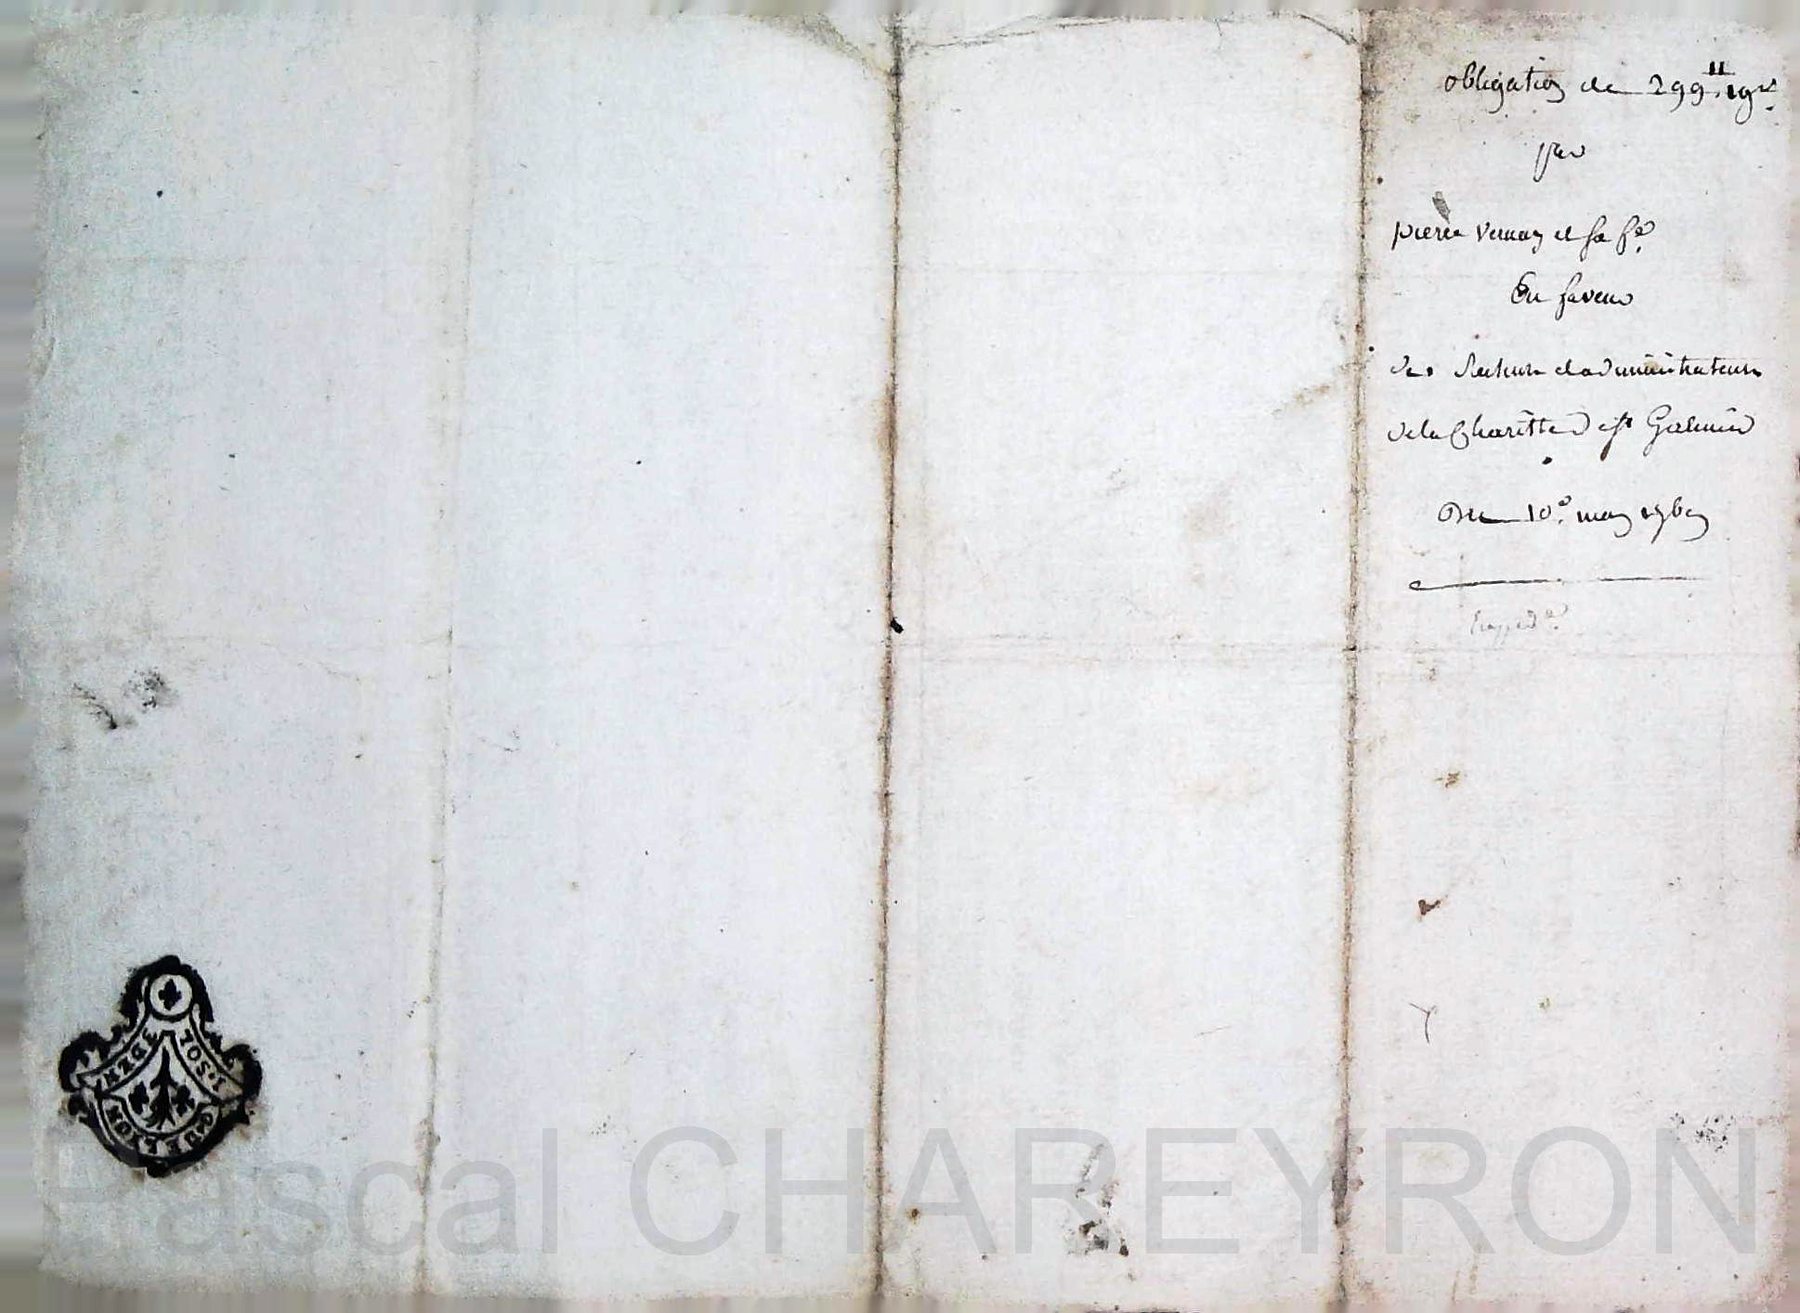 obligation de 299ᴸᴸ 19ˢ.
par
pierre Vernay et sa fᵉ.
En faveur
des Recteurs et administrateurs
de la Charitte de sᵗ Galmier
Du 10ᵉ. may 1765
I · SOL
G · DE LYON
Pascal CHAREYRON